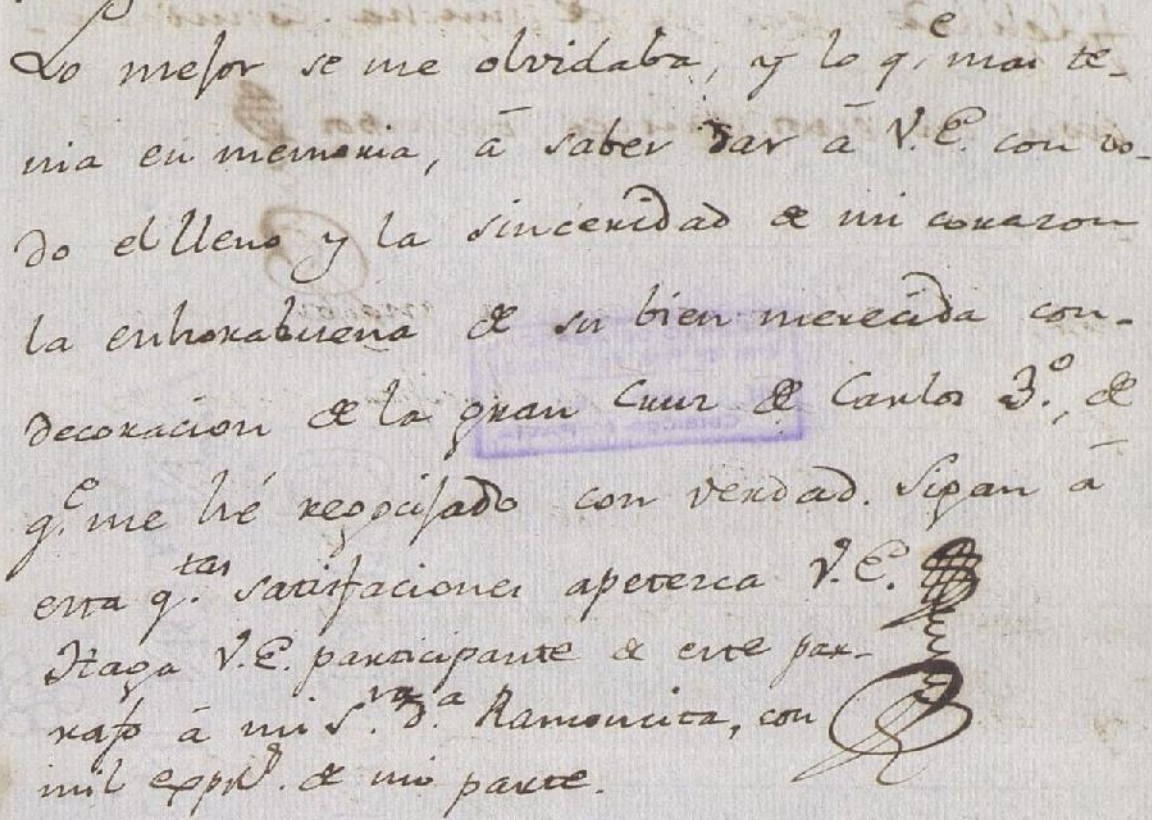 Lo mejor se me olvidaba, y lo q.e mas te-
nia en memoria, â saber dar â V.E. con to-
do el lleno y la sinceridad de mi corazon
la enhorabuena de su bien merecida con-
decoracion de la gran Cruz de Carlos 3.º, de
q.e me hé regocijado con verdad. Sigan â
esta q.tas satisfaciones apetezca V.E.
Haga V.E. participante de este par-
rafo â mi S.ra D.a Ramoncita, con
mil expr.s de mi parte.